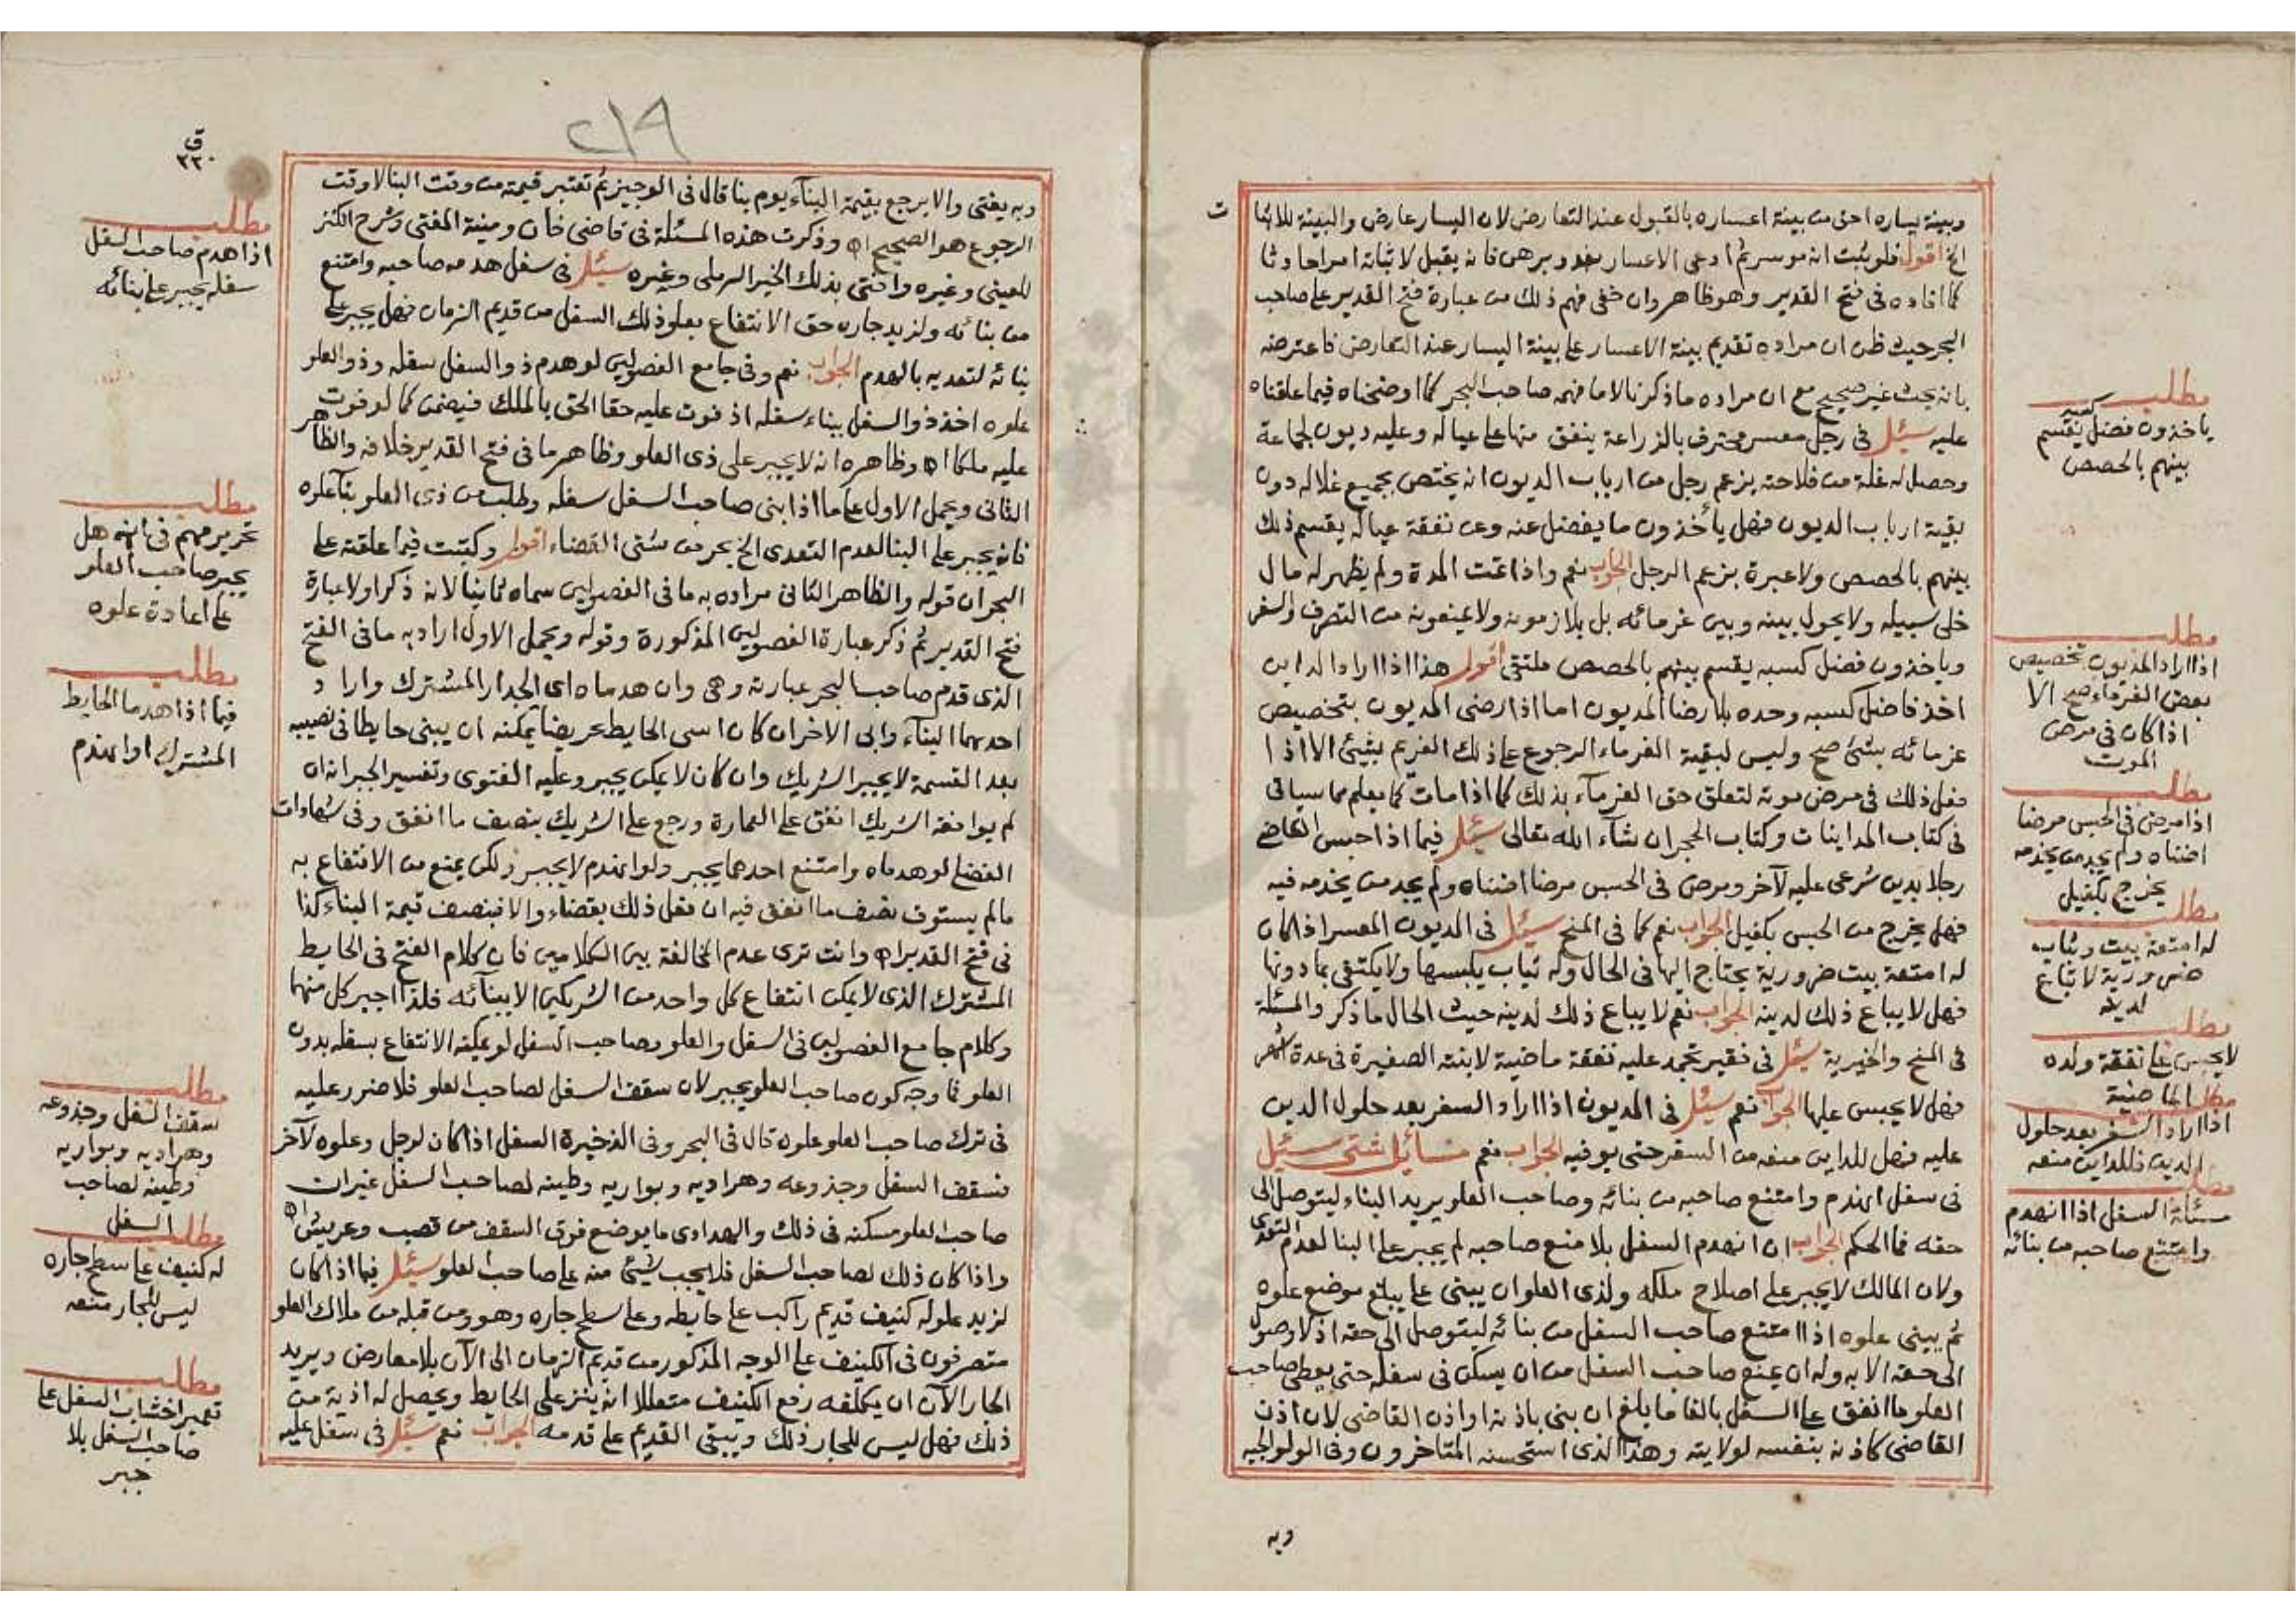 وبينة يساره احق من بينة اعساره بالقبول عند التعارض لان اليسار عارض والبينة للاثبات
الخ اقول فلو ثبت انه موسر ثم ادعى الاعسار بعده وبرهن فانه يقبل لاثباته امرا حادثا
كما افاده في فتح القدير وهو ظاهر وان خفى فهم ذلك من عبارة فتح القدير على صاحب
البحر حيث ظن ان مراده تقديم بينة الاعسار على بينة اليسار عند التعارض فاعترضه
بانه بحث غير صحيح مع ان مراده ما ذكرنا لا ما فهمه صاحب البحر كما اوضحناه فيما علقناه
عليه سئل في رجل معسر محترف بالزراعة ينفق منها على عياله وعليه ديون لجماعة
وحصل له غلة من فلاحته يزعم رجل من ارباب الديون انه يختص بجميع غلاله دون
بقية ارباب الديون فهل يأخذون ما يفضل عنه وعن نفقة عياله يقسم ذلك
بينهم بالحصص ولا عبرة بزعم الرجل الجواب نعم واذا تمت المدة ولم يظهر له مال
خلى سبيله ولا يحول بينه وبين غرمائه بل يلازمونه ولا يمنعونه من التصرف والسفر
وياخذون فضل كسبه يقسم بينهم بالحصص ملتقى اقول هذا اذا اراد الداين
اخذ فاضل كسبه وحده بلا رضا المديون اما اذا رضى المديون بتخصيص
غرمائه بشئ صح وليس لبقية الغرماء الرجوع على ذلك الغريم بشيئ الا اذا
فعل ذلك في مرض موته لتعلق حق الغرماء بذلك كما اذا مات كما يعلم مما سياتى
في كتاب المداينات وكتاب الحجر ان شآء الله تعالى سئل فيما اذا حبس القاضى
رجلا بدين شرعى عليه لآخر ومرض في الحبس مرضا اضناه ولم يجد من يخدمه فيه
فهل يخرج من الحبس بكفيل الجواب نعم كما في المنح سئل في المديون المعسر اذا كان
له امتعة بيت ضرورية يحتاج اليها في الحال وله ثياب يلبسها ولا يكتفى بما دونها
فهل لا يباع ذلك لدينه الجواب نعم لا يباع ذلك لدينه حيث الحال ما ذكر والمسئلة
في المنح والخيرية سئل في فقير تجمد عليه نفقة ماضية لابنته الصغيرة في عدة اشهر
فهل لا يحبس عليها الجواب نعم سئل في المديون اذا اراد السفر بعد حلول الدين
عليه فهل للداين منعه من السفر حتى يوفيه الجواب نعم مسائل شتى سئل
في سفل انهدم وامتنع صاحبه من بنائه وصاحب العلو يريد البناء ليتوصل الى
حقه فما الحكم الجواب ان انهدم السفل بلا صنع صاحبه لم يجبر على البنا لعدم التعدى
ولان المالك لا يجبر على اصلاح ملكه ولذى العلو ان يبنى على يبلغ موضع علوه
ثم يبنى علوه اذا امتنع صاحب السفل من بنائه ليتوصل الى حقه اذ لا وصول
الى حقه الا به وله ان يمنع صاحب السفل من ان يسكن في سفله حتى يعطى صاحب
العلو ما انفق على السفل بالغا ما بلغ ان بنى باذنه او اذن القاضى لان اذن
القاضى كاذنه بنفسه لولايته وهذا الذى استحسنه المتاخرون وفى الولوالجيه
وبه
ت
مطلب
كسبه
ياخذون فضل يقسم
بينهم بالحصص
مطلب
اذا اراد المديون تخصيص
بعض الغرماء صح الا
اذا كان في مرض
الموت
مطلب
اذا مرض في الحبس مرضا
اضناه ولم يجد من يخدمه
يخرج بكفيل
مطلب
له امتعة بيت وثياب
ضرورية لا تباع
لدينه
مطلب
لا يحبس على نفقة ولده
الماضية
مطلب
اذا اراد السفر بعد حلول
الدين فللداين منعه
مطلب
مسئلة السفل اذا انهدم
وامتنع صاحبه من بنائه
٢١٩
ق
٢٢٠
وبه يفتى والا يرجع بقيمة البنآء يوم بنا قال في الوجيز ثم تعتبر قيمته من وقت البنا لا وقت
الرجوع هو الصحيح اه وذكرت هذه المسئلة في قاضى خان ومنية المفتى وشرح الكنز
للعينى وغيره وافتى بذلك الخير الرملى وغيره سئل في سفل هدمه صاحبه وامتنع
من بنائه ولزيد جاره حق الانتفاع بعلو ذلك السفل من قديم الزمان فهل يجبر على
بنائه لتعديه بالهدم الجواب نعم وفى جامع الفصولين لو هدم ذو السفل سفله وذو العلو
علوه اخذ ذو السفل ببناء سفله اذ فوت عليه حقا الحق بالملك فيضمن كما لو فوت
عليه ملكا اه وظاهره انه لا يجبر على ذى العلو وظاهر ما في فتح القدير خلافه والظاهر
الثانى ويحمل الاول على ما اذا بنى صاحب السفل سفله وطلب من ذى العلو بنآء علوه
فانه يجبر على البنا لعدم التعدى الخ بحر من شتى القضاء اقول وكتبت فيما علقته على
البحر ان قوله والظاهر الثانى مراده به ما في الفصولين سماه ثانيا لانه ذكر اولا عبارة
فتح القدير ثم ذكر عبارة الفصولين المذكورة وقوله ويحمل الاول اراد به ما في الفتح
الذى قدم صاحب البحر عبارته وهى وان هدماه اى الجدار المشترك واراد
احدهما البنآء وابى الاخر ان كان اسى الحايط عريضا يمكنه ان يبنى حايطا في نصيبه
بعد القسمة لا يجبر الشريك وان كان لا يمكن يجبر وعليه الفتوى وتفسير الجبر انه ان
لم يوافقه الشريك انفق على العمارة ورجع على الشريك بنصف ما انفق وفى شهادات
الفضلى لو هدماه وامتنع احدهما يجبر ولو انهدم لا يجبر ولكن يمنع من الانتفاع به
ما لم يستوف نصف ما انفق فيه ان فعل ذلك بقضاء والا فبنصف قيمة البناء كذا
في فتح القدير اه وانت ترى عدم المخالفة بين الكلامين فان كلام الفتح في الحايط
المشترك الذى لا يمكن انتفاع كل واحد من الشريكين الا ببنآئه فلذا اجبر كل منهما
وكلام جامع الفصولين في السفل والعلو وصاحب السفل لو يمكنه الانتفاع بسفله بدون
العلو فما وجه كون صاحب العلو يجبر لان سقف السفل لصاحب العلو فلا ضرر عليه
في ترك صاحب العلو علوه قال في البحر وفى الذخيرة السفل اذا كان لرجل وعلوه لآخر
فسقف السفل وجذوعه وهراديه وبواريه وطينه لصاحب السفل غير ان
صاحب العلو مسكنه في ذلك والهرادى ما يوضع فوق السقف من قصب وعريش اه
واذا كان ذلك لصاحب السفل فلا يجب شئ منه على صاحب العلو سئل فيما اذا كان
لزيد علو له كنيف قديم راكب على حايطه وعلى سطح جاره وهو ومن قبله من ملاك العلو
متصرفون في الكنيف على الوجه المذكور من قديم الزمان الى الآن بلا معارض ويريد
الجار الآن ان يكلفه رفع الكنيف متعللا انه ينز على الحايط ويحصل له اذية من
ذلك فهل ليس للجار ذلك ويبقى القديم على قدمه الجواب نعم سئل في سفل عليه
مطلب
اذا هدم صاحب السفل
سفله يجبر على بنائه
مطلب
تحرير مهم في انه هل
يجبر صاحب العلو
على اعادة علوه
مطلب
فيما اذا هدما الحايط
المشترك او انهدم
مطلب
سقف السفل وجذوعه
وهراديه وبواريه
وطينه لصاحب
السفل
مطلب
له كنيف على سطح جاره
ليس للجار منعه
مطلب
تعمير اخشاب السفل على
صاحب السفل بلا
جبر